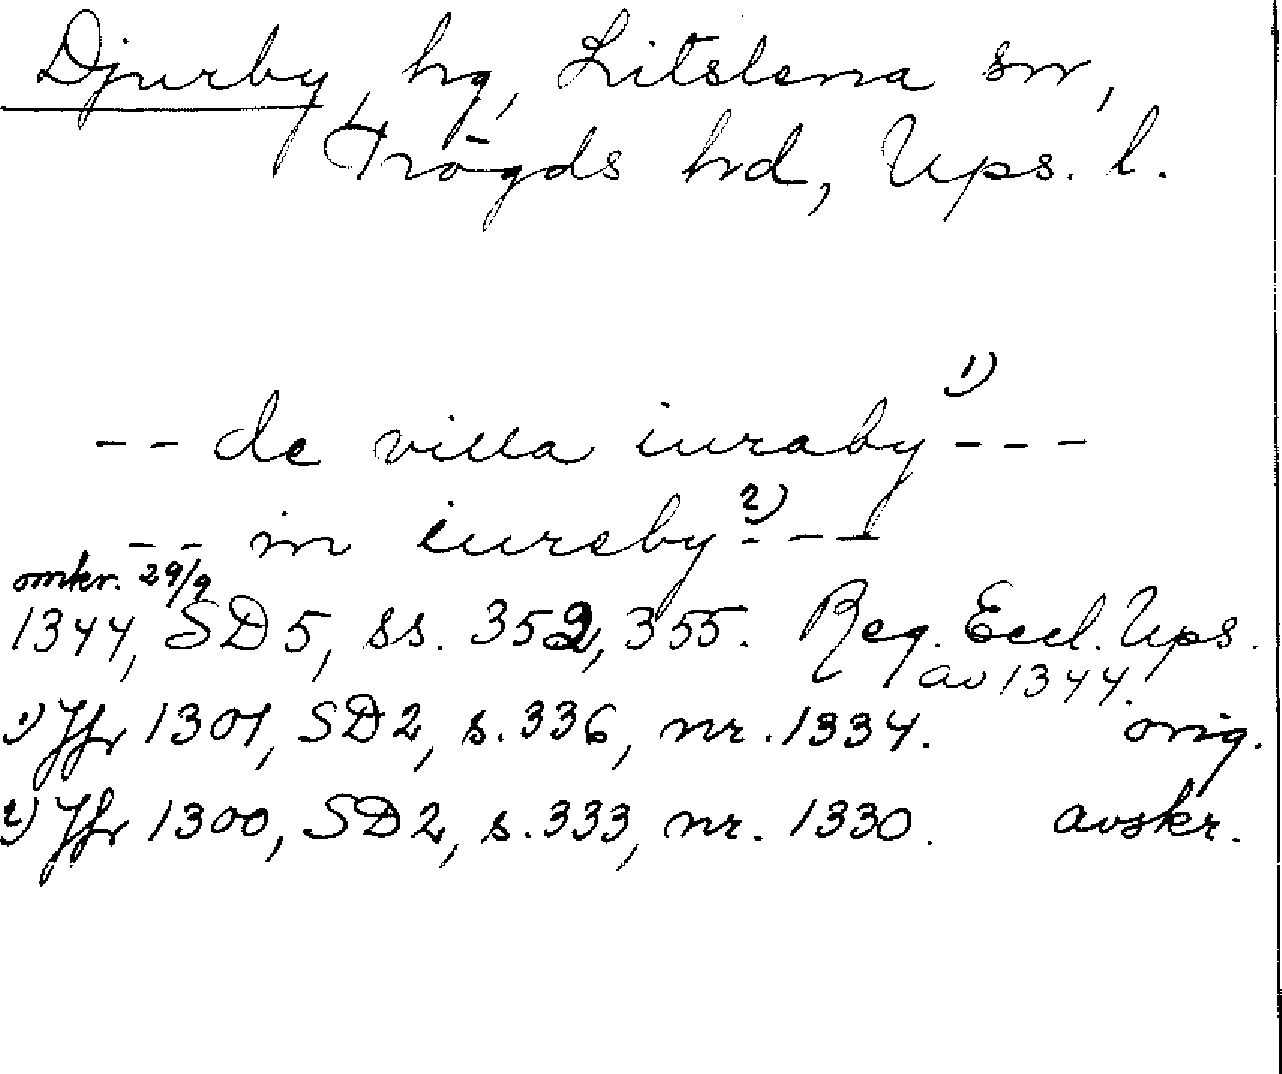 Djurby, hg, Litslena sn,
Trögds hd, Ups. l.
-- de villa iuraby 1) ---
-- in iureby 2) ---
omkr. 29/9
1344, SD 5, ss. 352, 355. Reg. Eccl. Ups.
av 1344.
1) Jfr 1301, SD 2, s. 336, nr. 1334. orig.
2) Jfr 1300, SD 2, s. 333, nr. 1330. avskr.